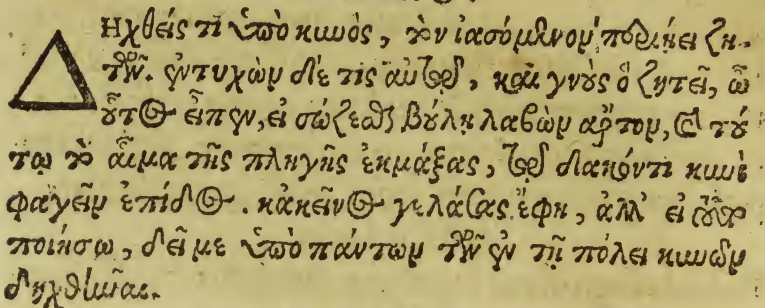 Δηχθείς τι ὑπὸ κυνὸς, τὸν ἰασόμενον περιῄει ζη-
τῶν. ἐντυχὼν δέ τις αὐτῷ, καὶ γνοὺς ὃ ζητεῖ, ὦ
οὗτος εἶπεν, εἰ σώζεσθαι βούλῃ λαβὼν ἄρτον, καὶ τού
τῳ τὸ αἷμα τῆς πληγῆς ἐκμάξας, τῷ δακόντι κυνὶ
φαγεῖν ἐπίδος. κἀκεῖνος γελάσας ἔφη, ἀλλ' εἰ τοῦτο
ποιήσω, δεῖ με ὑπὸ πάντων τῶν ἐν τῇ πόλει κυνῶν
δηχθῆναι.